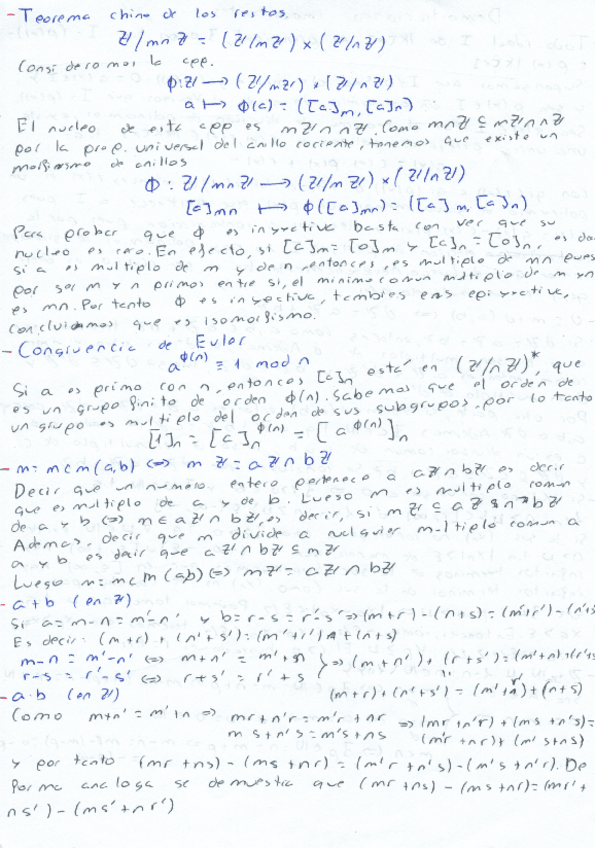 - Teorema chino de los restos
ℤ/mnℤ = (ℤ/mℤ) x (ℤ/nℤ)
Consideramos la app.
ϕ: ℤ ⟶ (ℤ/mℤ) x (ℤ/nℤ)
a ⟼ ϕ(a) = ([a]m, [a]n)
El nucleo de esta app es mℤ∩nℤ. Como mnℤ ⊆ mℤ∩nℤ
por la prop. universal del anillo cociente, tenemos que existe un
morfismo de anillos
Φ: ℤ/mnℤ ⟶ (ℤ/mℤ) x (ℤ/nℤ)
[a]mn ⟼ Φ([a]mn) = ([a]m, [a]n)
Para probar que Φ es inyectiva basta con ver que su
nucleo es cero. En efecto, si [a]m = [0]m y [a]n = [0]n, es
si a es multiplo de m y de n, entonces, es multiplo de mn pues
por ser m y n primos entre si, el minimo comun multiplo de m y n
es mn. Por tanto Φ es inyectiva, es epiyectiva,
concluidmos que es isomorfismo.
- Congruencia de Euler
a^ϕ(n) ≡ 1 mod n
Si a es primo con n, entonces [a]n está en (ℤ/nℤ)*, que
es un grupo finito de orden ϕ(n). Sabemos que el orden de
un grupo es multiplo del orden de sus subgrupos, por lo tanto
[1]n = [a]n^ϕ(n) = [a^ϕ(n)]n
- m = mcm(a,b) <=> mℤ = aℤ ∩ bℤ
Decir que un numero entero pertenece a aℤ∩bℤ es decir
que es multiplo de a y de b. Luego m es multiplo comun
de a y b <=> m ∈ aℤ ∩ bℤ, es decir, si mℤ ⊆ aℤ ∩ bℤ
Ademas, decir que m divide a cualquier multiplo comun a
a y b es decir que aℤ ∩ bℤ ⊆ mℤ
Luego m = mcm(a,b) <=> mℤ = aℤ ∩ bℤ
- a + b (en ℤ)
Si a = m-n = m'-n' y b = r-s = r'-s' => (m+r) - (n+s) = (m'+r') - (n'+s
Es decir: (m+r) + (n'+s') = (m'+r') + (n+s)
m-n = m'-n' <=> m+n' = m'+n } => (m+n') + (r+s') = (m'+n) + (r'+s
r-s = r'-s' <=> r+s' = r'+s
(m+r) + (n'+s') = (m'+r') + (n+s)
- a·b (en ℤ)
Como m+n' = m'+n => mr+n'r = m'r+nr => (mr+n'r) + (ms+ns) =
ms+n's = m's+ns (m'r+nr) + (m's+ns)
y por tanto (mr+ns) - (ms+nr) = (m'r+n's) - (m's+n'r). De
forma analoga se demuestra que (mr+ns) - (ms+nr) = (mr'+
ns') - (ms'+nr')